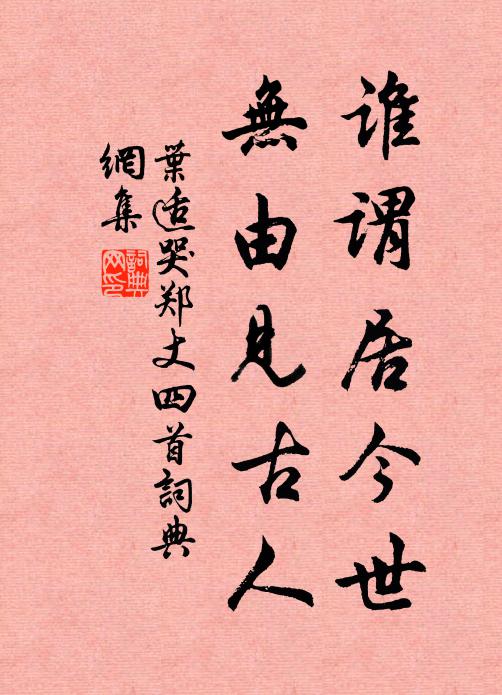 谁谓居今世
無由見古人
葉适哭郑丈四首詞典
網集
詞典
网印